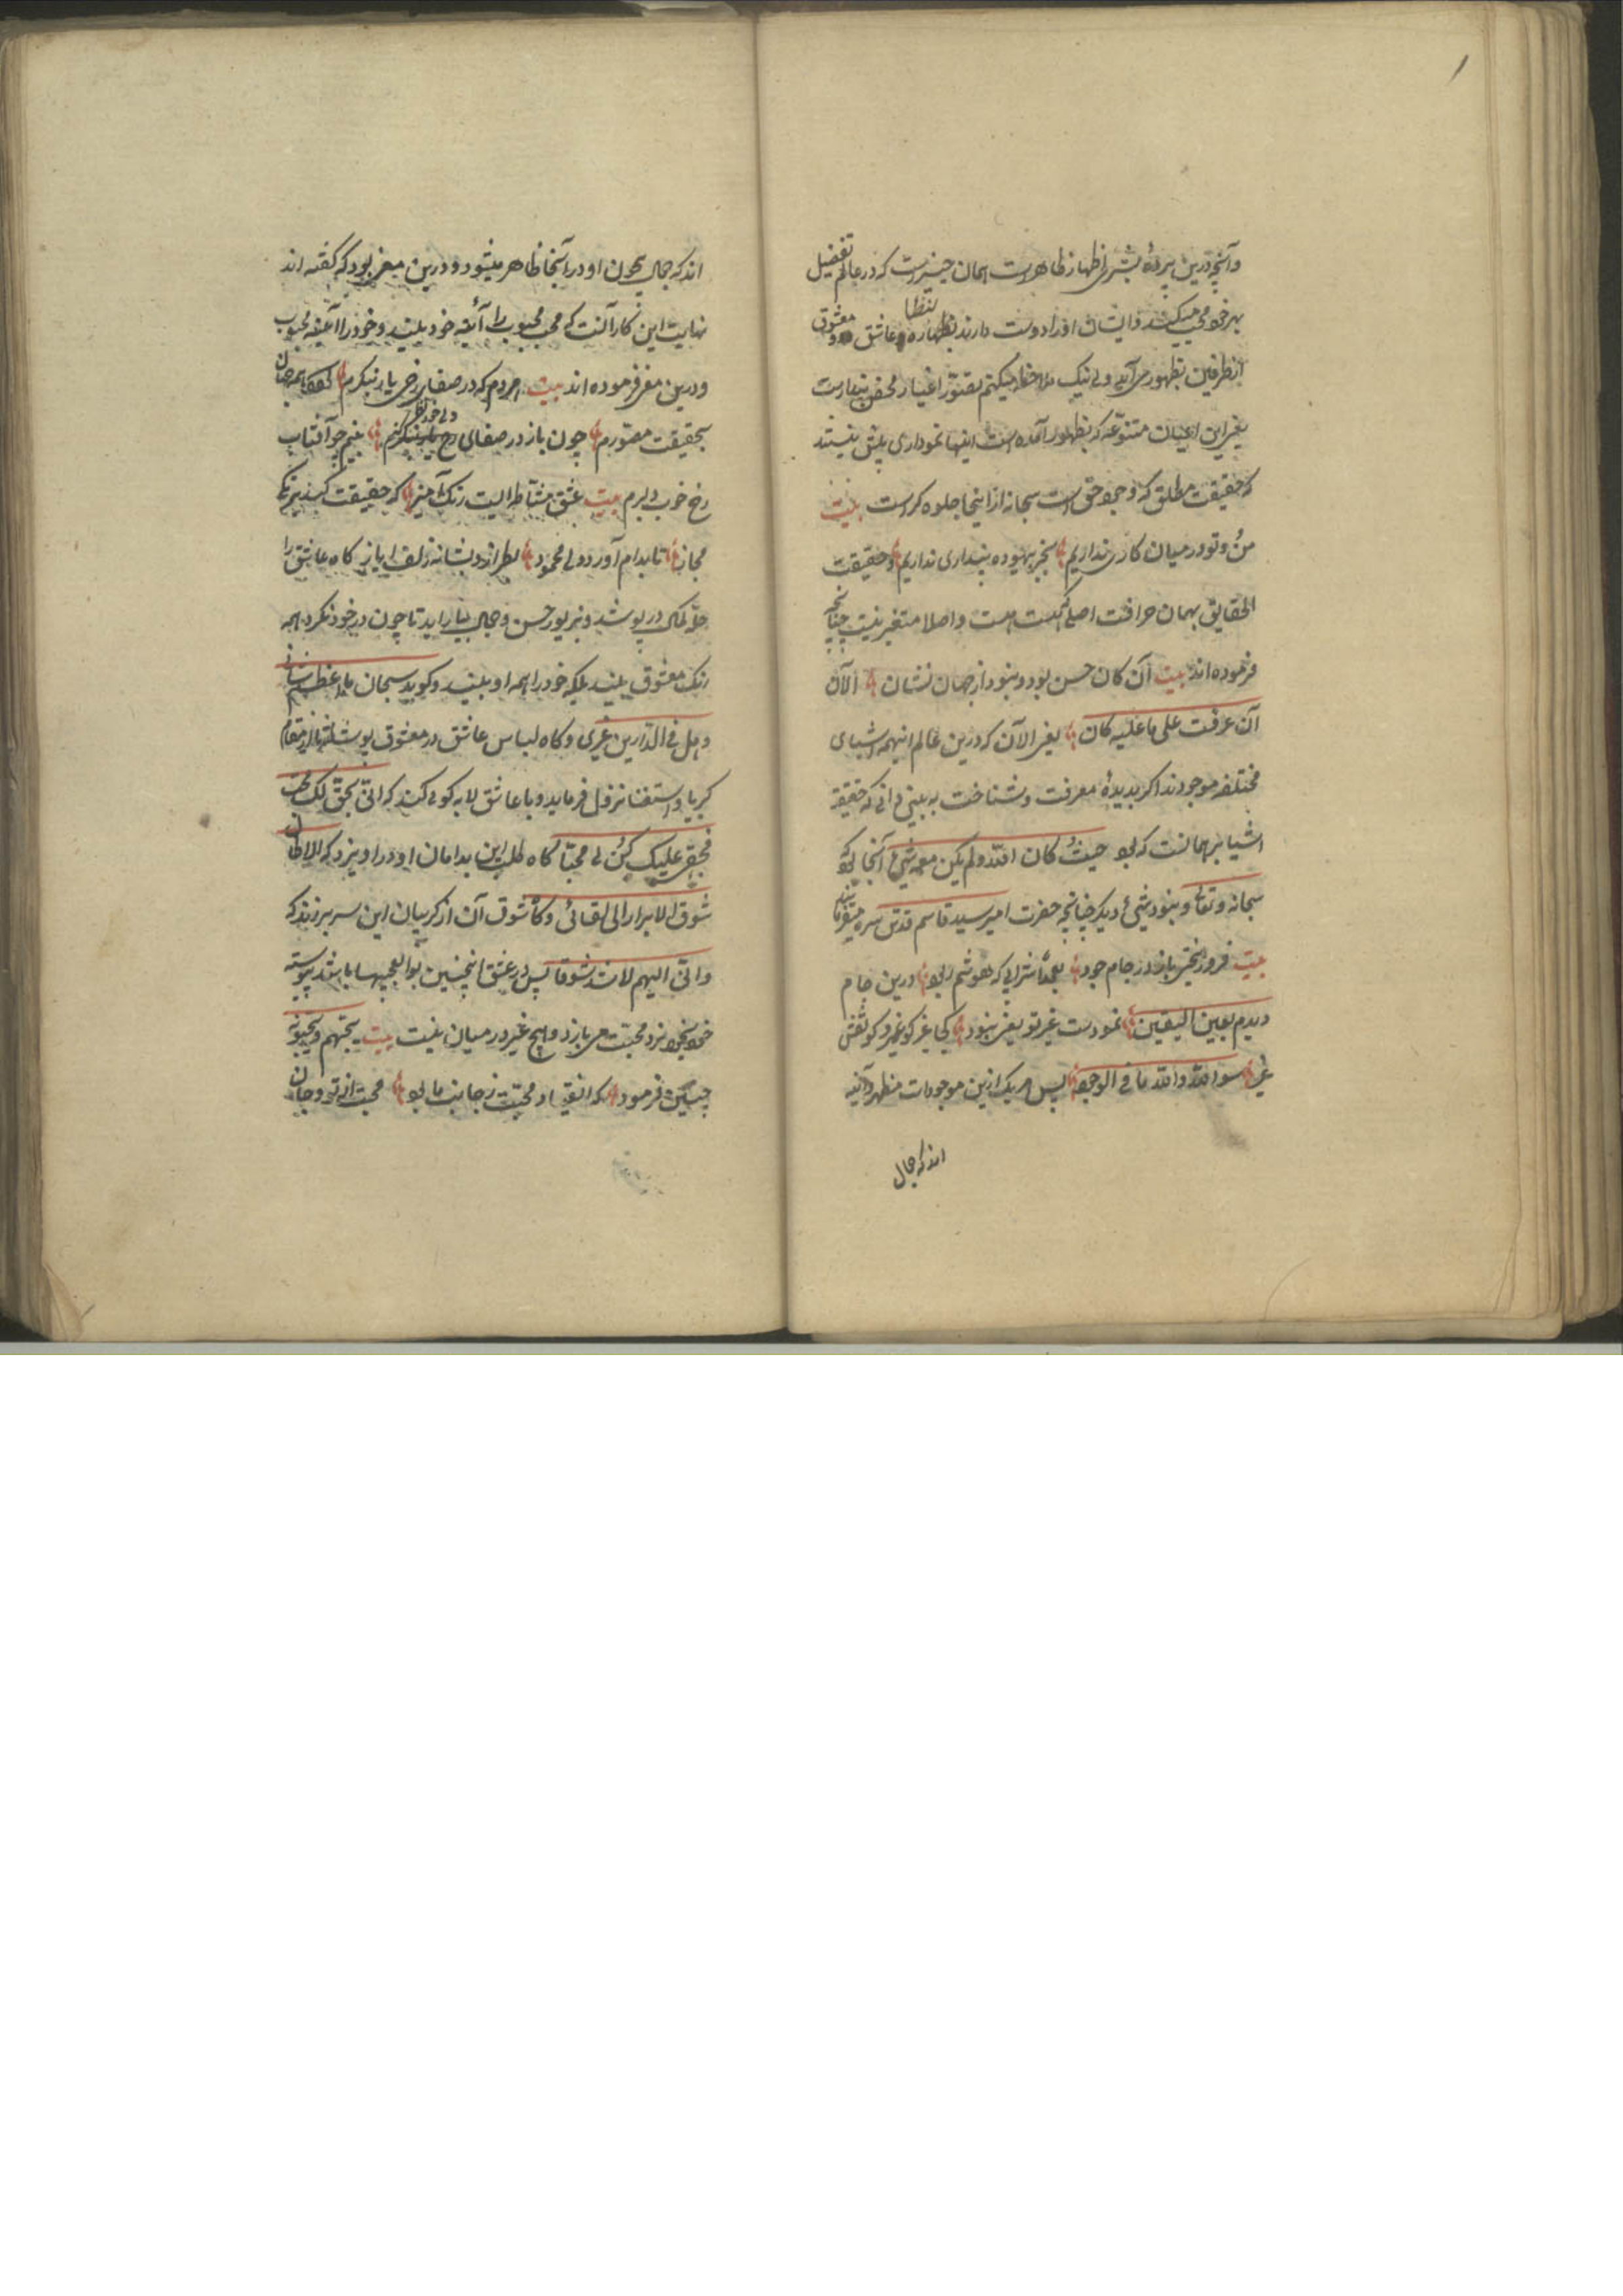 وآنچه درین پردهٔ بشری اظهار ظاهرست همان چیزیست که در عالم تفصیل
بهر خود محب میکشد و ایشان او را دوست دارند عاشق و معشوق
ازطرفین بظهور می آید ولی نیک ملاحظه میکنم تصوّر اغیار محض پندارست
بغیر این اعیان متنوّعه که بظهور آمده است اینها نموداری بیش نیستند
که حقیقت مطلق که وجود حق است سبحانه از اینجا جلوه کرست بیت
من و تو در میان کاری نداریم بجز بیهوده پنداری نداریم و حقیقت
الحقایق بهمان صرافت اصلی که هست است و اصلا متغیر نیست چنانچه
فرموده اند بیت آن کان حسن بود و نبود از جهان نشان الآن
آن عرفت علی ما علیه کان یعنی الآن که درین عالم اینهمه اشیای
مختلفه موجودند اگر بدیدهٔ معرفت و شناخت به بینی دانی که حقیقة
اشیا بر همانست که بود حیث کان الله ولم یکن معه شیٔ آنجا که
سبحانه و تعالی و نبود شیٔ دیگر چنانچه حضرت امیر سید قاسم قدس سره میفرمایند
بیت فرو در جام جود شرابی که درین جام
دیدم بعین الیقین نمودست غیر تو یعنی نبود کجا غیر کو غیر و کو نقش
غیر سوا الله والله ما فی الوجود پس هر یک ازین موجودات مظهر و آئینه
اند که جمال
اند که جمال بیچون او در آنجا ظاهر میشود و درین معنی بود که گفته اند
نهایت این کار آنست که محب محبوب را آئینه خود بیند و خود را آئینه محبوب
و درین معنی فرموده اند بیت هر دم که در صفای رخ یار بنگرم همه جهان
بحقیقت مصوّرم چون باز در صفای رخ دلی خود نظر کنم بینم چو آفتاب
رخ خوب دلبرم بیت عشق مشاطه ایست رنگ آمیز که حقیقت کند برنگ
مجاز تا بدام آورد دل محمود بطرازد بشانه زلف ایاز کاه عاشق را
حلّه در پوشد و بزیور حسن و جمال بیاراید تا چون در خود نگرد همه
رنگ معشوق بیند بلکه خود را همه او بیند و گوید سبحان ما اعظم شانی
و هل فی الدّارین غیری و کاه لباس عاشق در معشوق پوشاند تا از مقام
کبریا و استغنا نزول فرماید و با عاشق لابه گوی کند که انی بحق لک محب
فبحقی علیک کن لی محبّا کاه طلب این بدامان او در آویزد که الا طال
شوق الابرار الی لقائی و کاه شوق آن از گریبان این سر برزند که
و انّی الیهم لاشد شوقا پس در عشق اینچنین بو العجبیها باشد پیوسته
خود بخود نرد محبت می بازد و هیچ غیر در میان نیست بیت یحبّهم و یحبّونه
چنین فرمود که محبّت ز جانب ما بود محبت از تو و جان